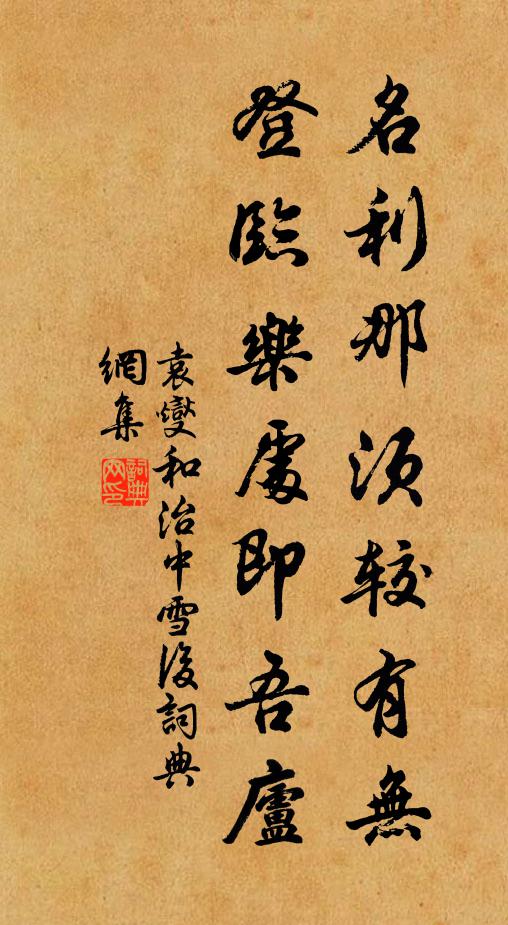 名利那須較有無
登臨樂處即吾廬
袁燮和治中雪後詞典
網集
詞典網印